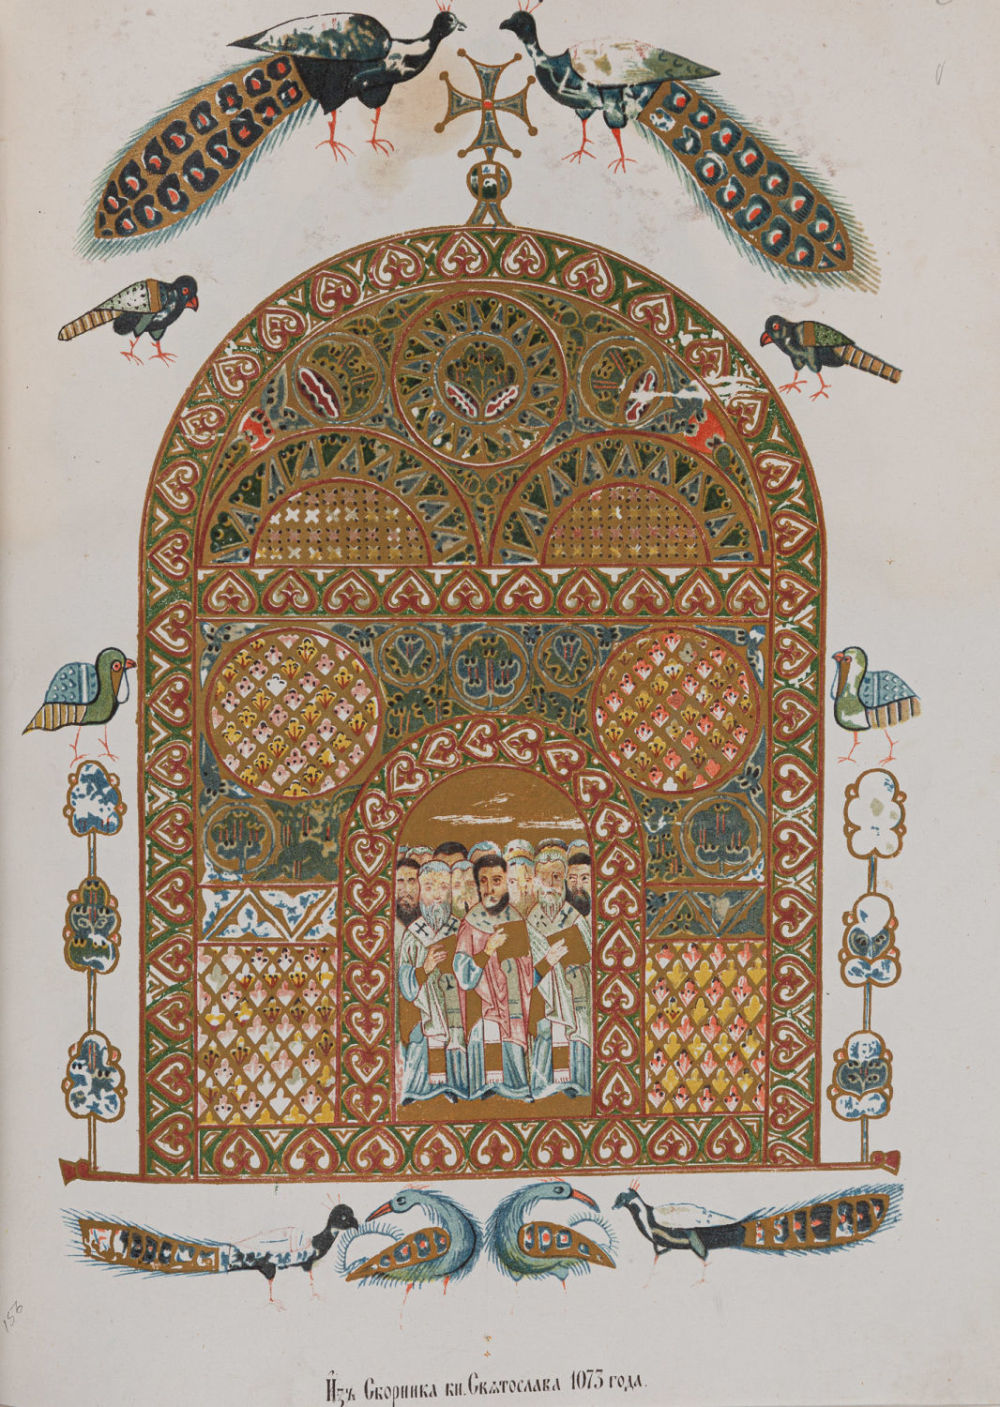 Изъ Сборника кн. Святослава 1073 года.
156